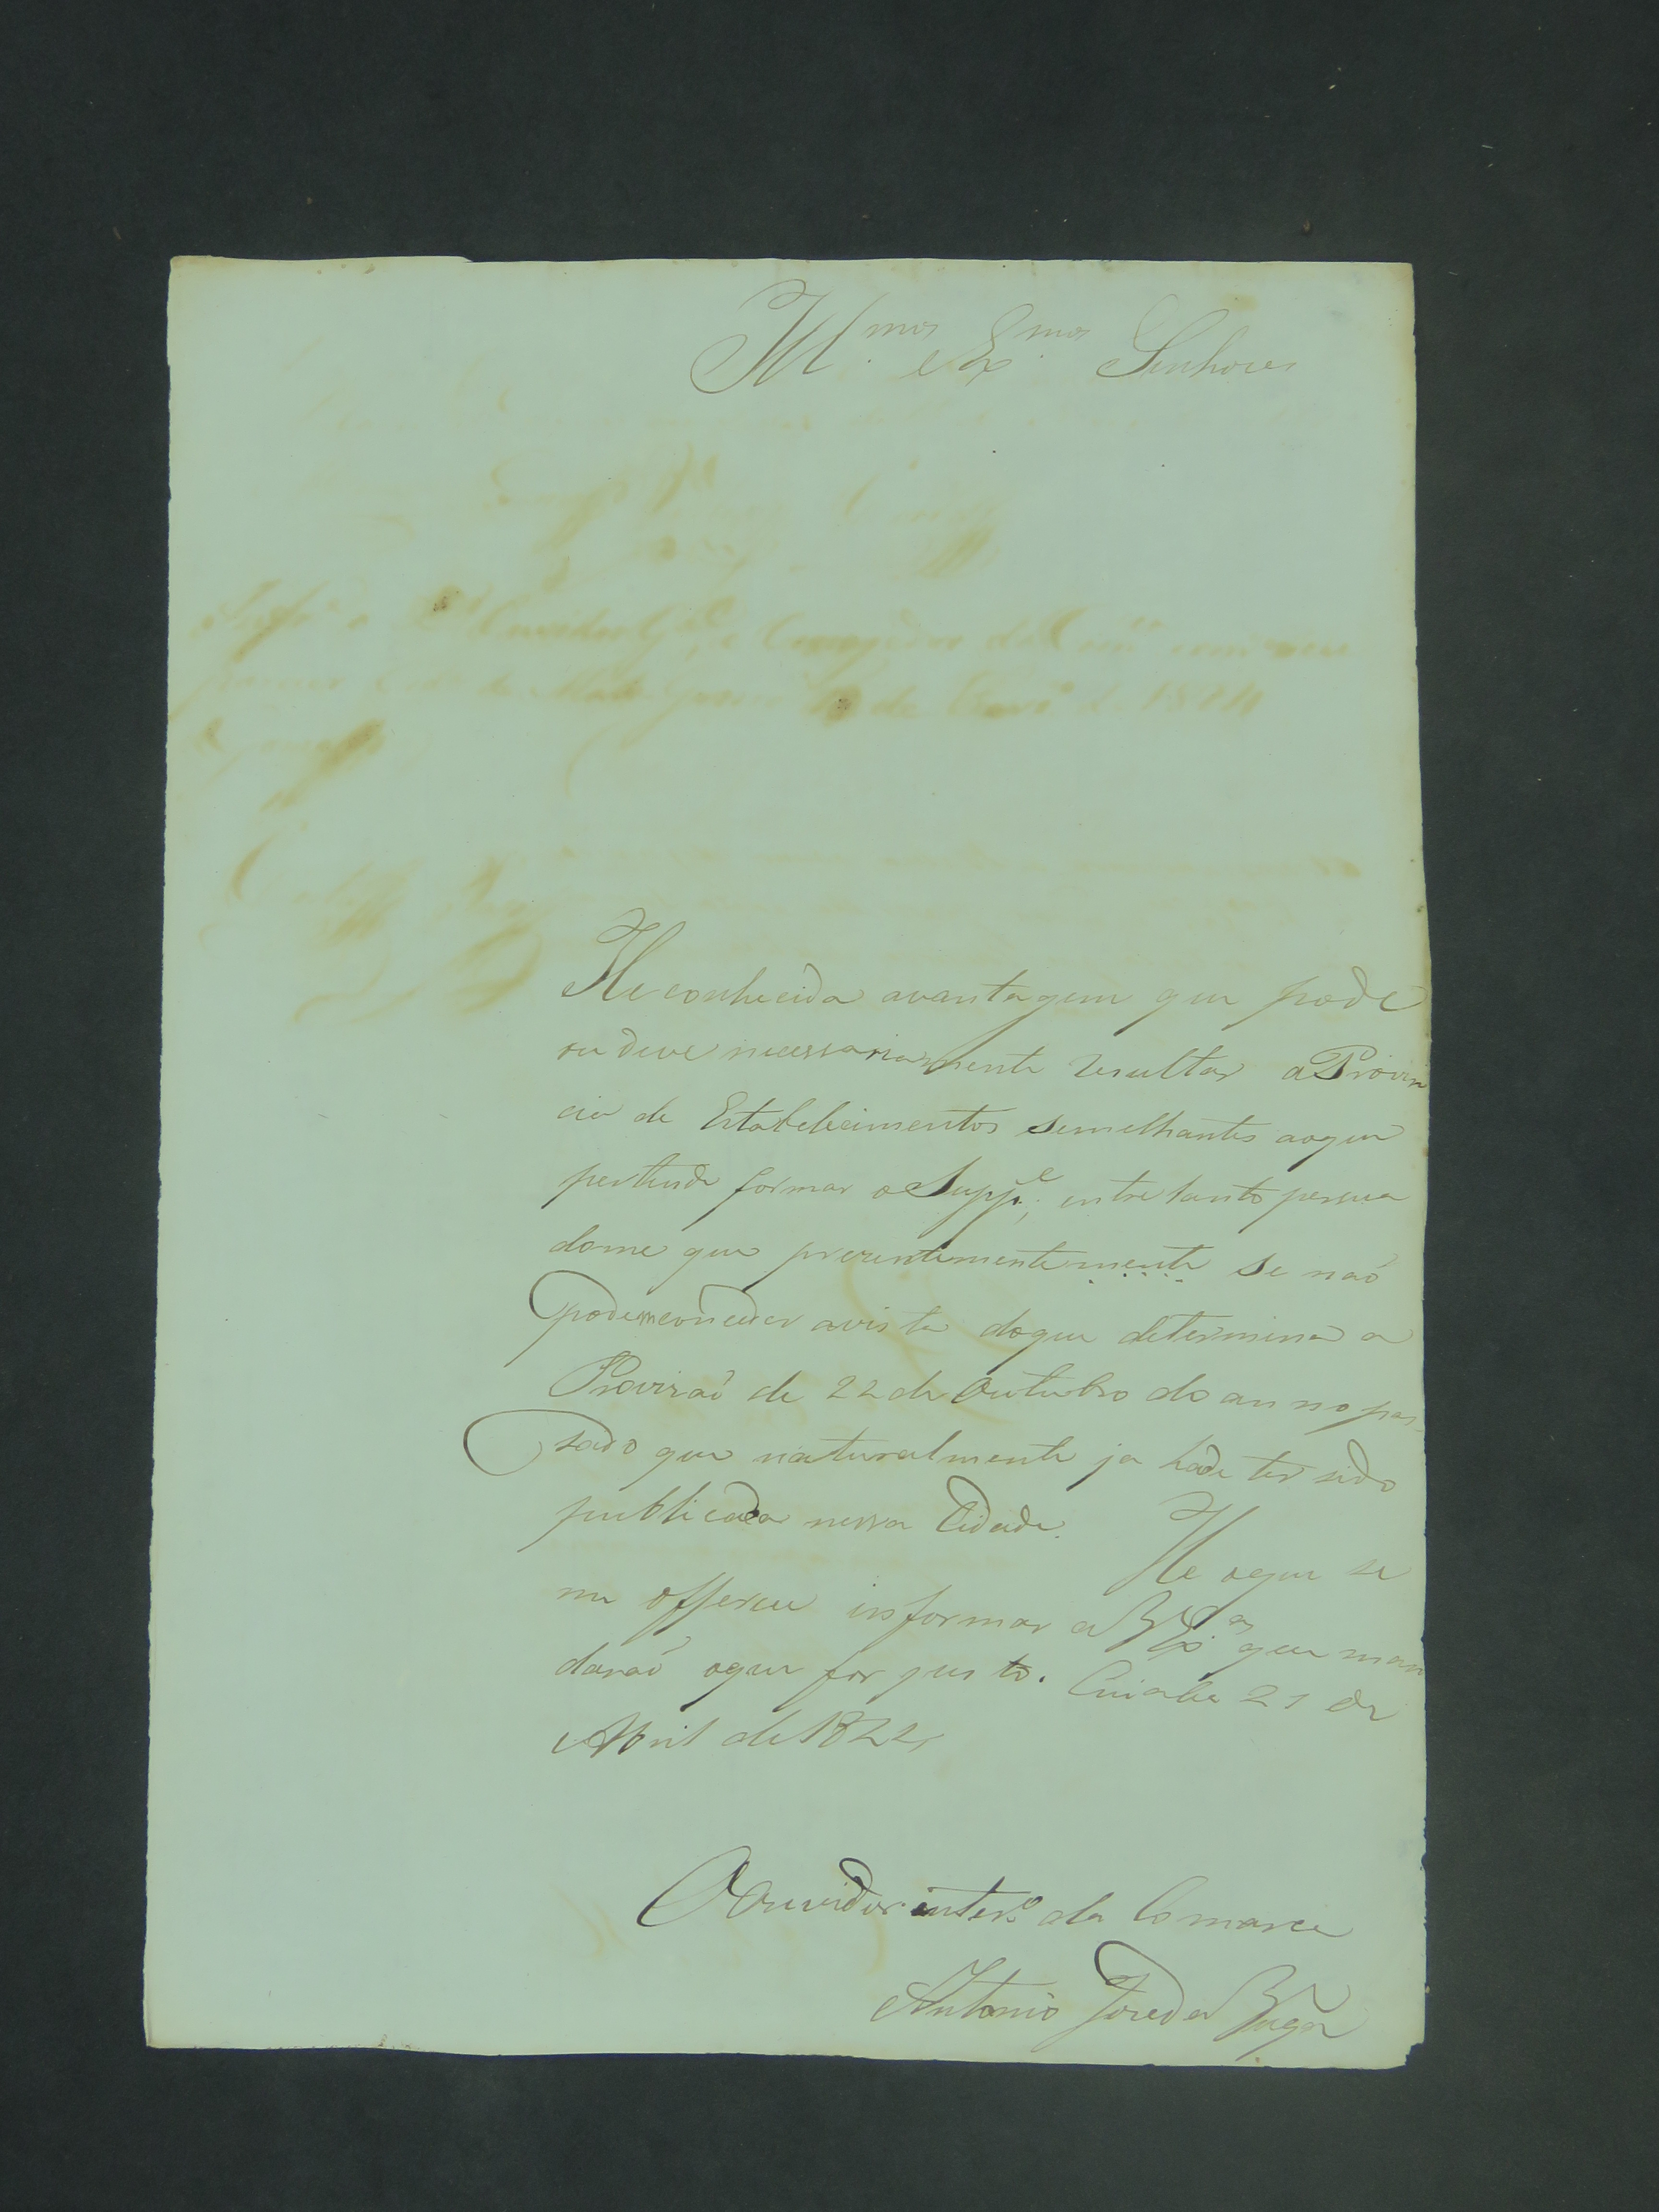 Ill.mos e Ex.mos Senhores
He conhecida avantagem que pode
ou deve necessariamente resultar a Provin
cia de Estabelecimentos semelhantes aoque
pertende formar o Supp.e; entretanto persua
dome que prezentementemente se naõ
podem conceder avista doque determina a
Provizaõ de 22 de Outubro do anno pas
sado que naturalmente ja hade ter sido
publicada nessa Cidade. He oque se
me offerece informar a VV Ex.as que man
daraõ oque for justo. Cuiaba 21 de
Abril de 1824
O Ouvidor inter.o da Comarca
Antonio Joze da Veiga